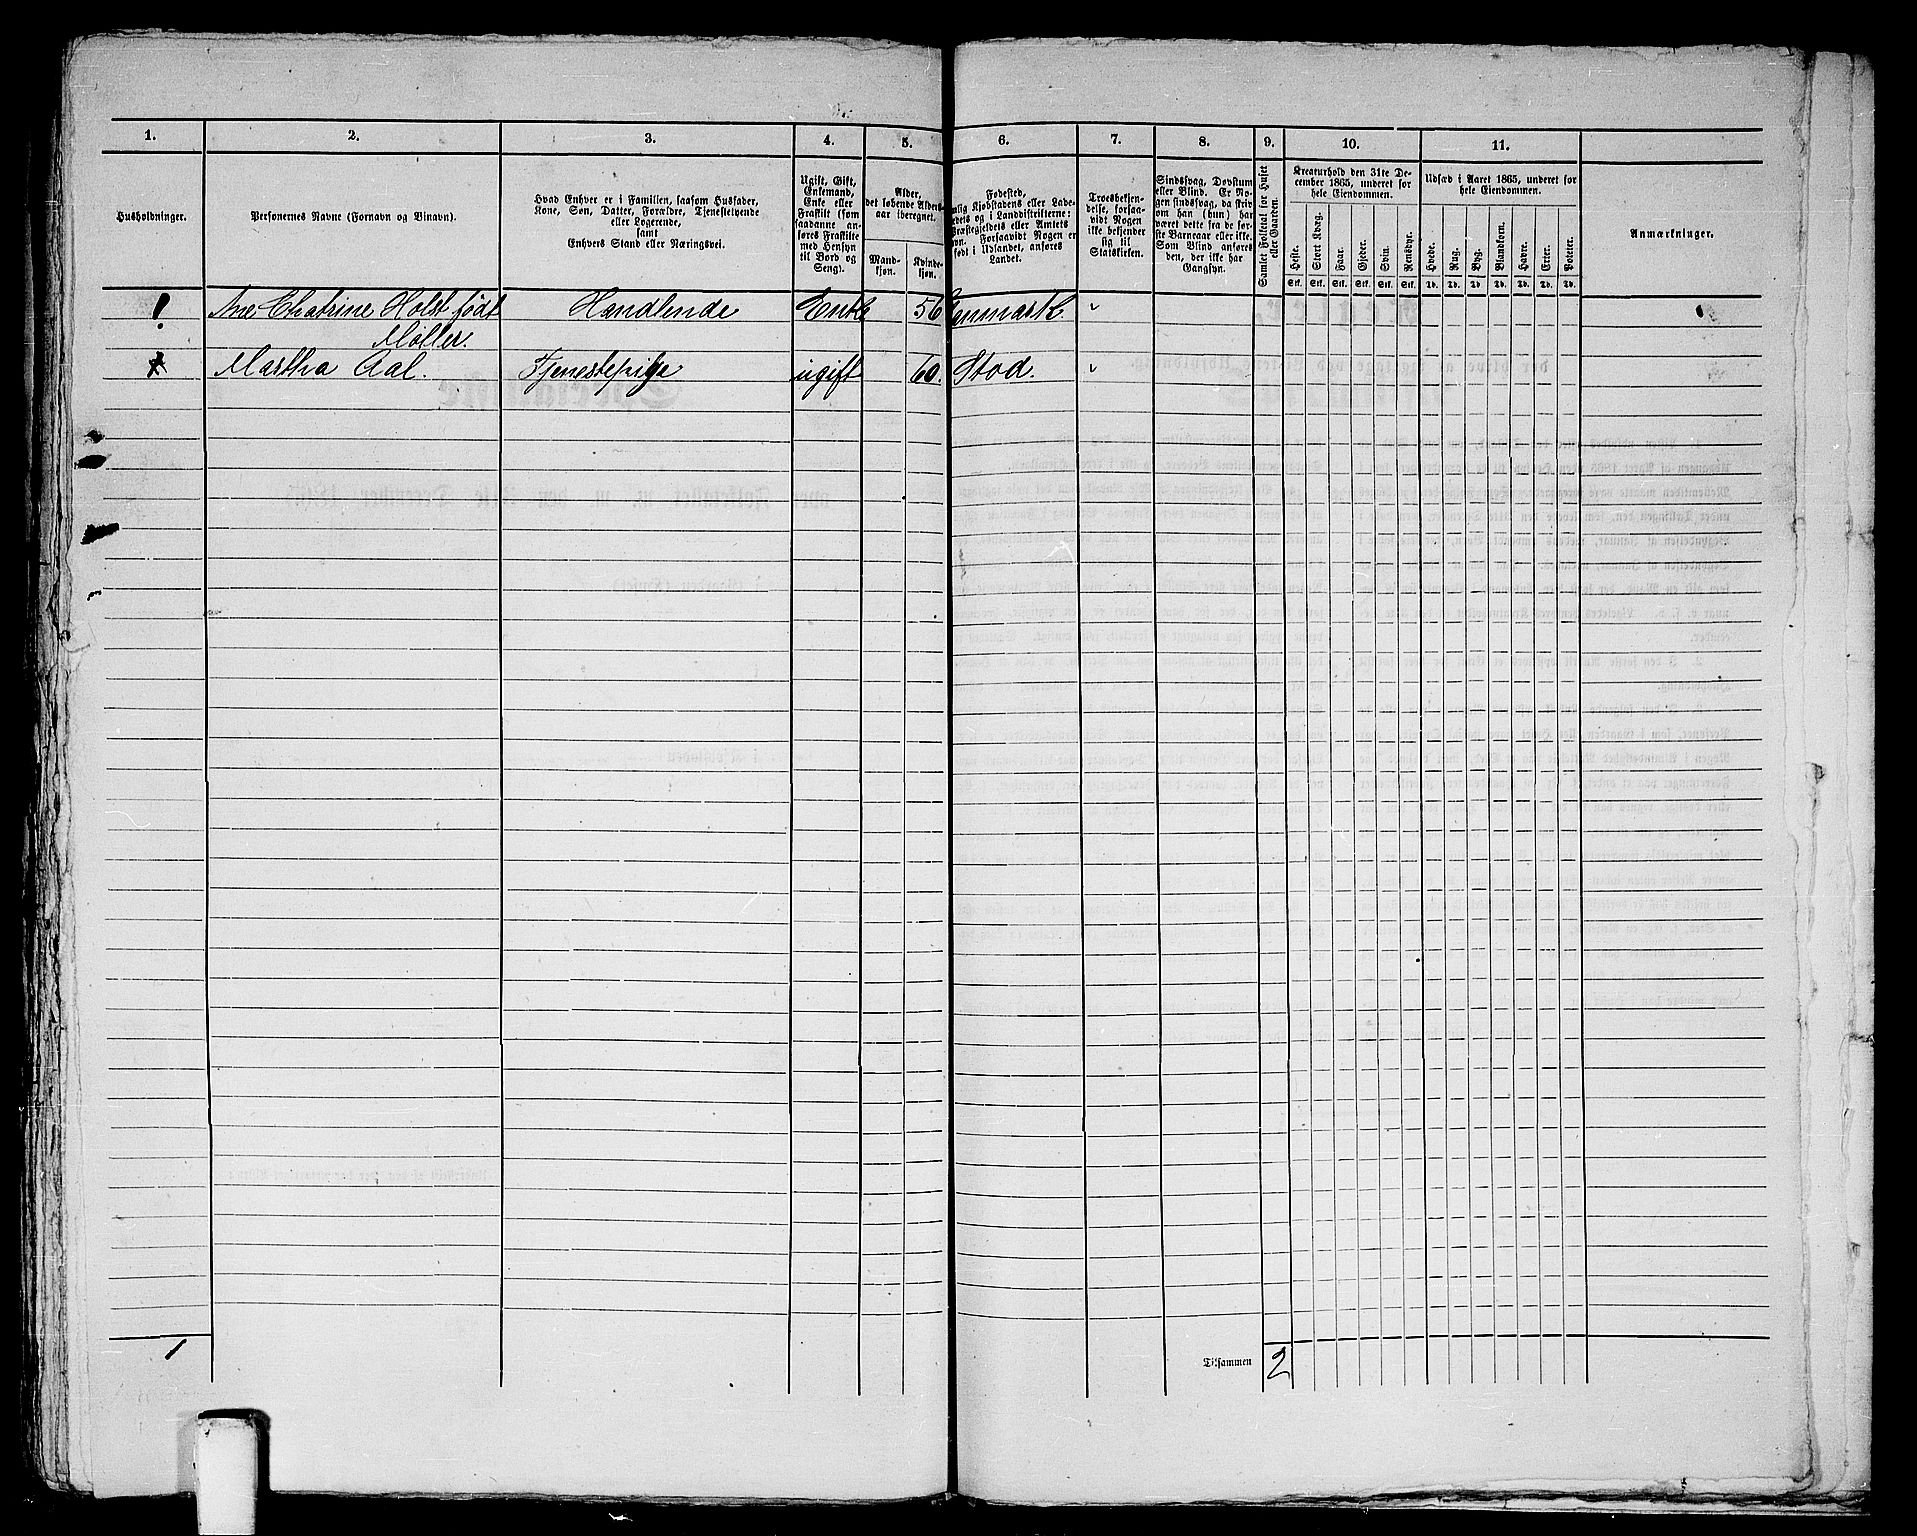 1. 2. 3. 4. 5. 6. 7. 8. 9. 10. 11.
Husholdninger.
Personernes Navne (Fornavn og Vinavn).
Hvad Enhver er i Familien, saasom Husfader,
Kone, Søn, Datter, Forældre, Tjenestetyende
eller Logerende,
samt
Enhvers Stand eller Næringsvei.
Ugift, Gift,
Enkemand,
Enke eller
Fraskilt (som
saadanne an-
føres Fraskilte
med Hensyn
til Bord og
Seng).
Alder,
det løbende Alders-
aar iberegnet.
Mand-
kjøn.
Kvinde-
kjøn.
Fødested,
Landet.
Troesbekjen-
delse, forsaa-
vidt Nogen
ikke bekjender
sig til
Statskirken.
Sindssvag, Døvstum
eller Blind. Er No-
gen sindssvag, da skriv
om han (hun) har
været dette fra de før-
ste Barneaar eller ikke.
Som Blind anføres
den, der ikke har
Gangsyn.
Samlet Folketal for Huset
eller Gaarden.
Kreaturhold den 31te De-
cember 1865, underet for
hele Eiendommen.
Heste. Stort Kvæg. Faar. Gjeder. Svin. Rensdyr.
Stk. Stk. Stk. Stk. Stk. Stk.
Udsæd i Aaret 1865, underet for
hele Eiendommen.
Hvede. Rug. Byg. Blandkorn. Havre. Erter. Poteter.
Td. Td. Td. Td. Td. Td. Td.
Anmærkninger.
Ane Chatrine Holst født Handlende Enke 56 Danmark
Møller.
Martha Aal. Tjenestepige ugift 60. Stod.
1
Tilsammen 2